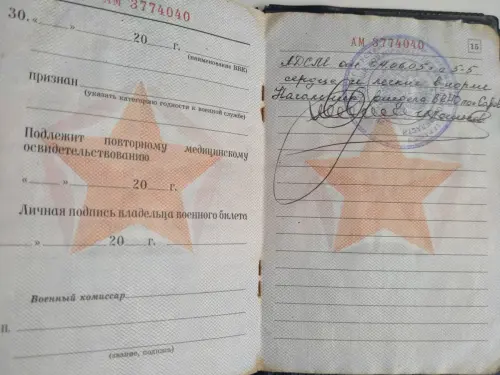 АМ 3774040
30.
„ “ 20 г.
(наименование ВВК)
признан
(указать категорию годности к военной службе)
Подлежит повторному медицинскому
освидетельствованию
„ “ 20 г.
Личная подпись владельца военного билета
„ “ 20 г.
Военный комиссар
П.
(звание, подпись)
АМ 3774040
15
АДСМ от 04.06.05г
сердце и легкие в норме
Начальник